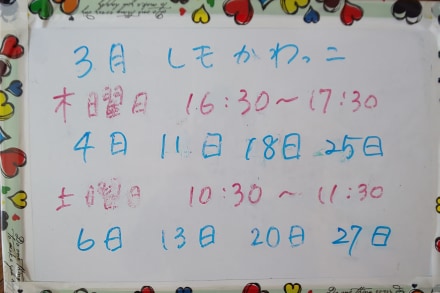 3月 しモかわっこ
木曜日 16:30〜17:30
4日 11日 18日 25日
土曜日 10:30〜11:30
6日 13日 20日 27日